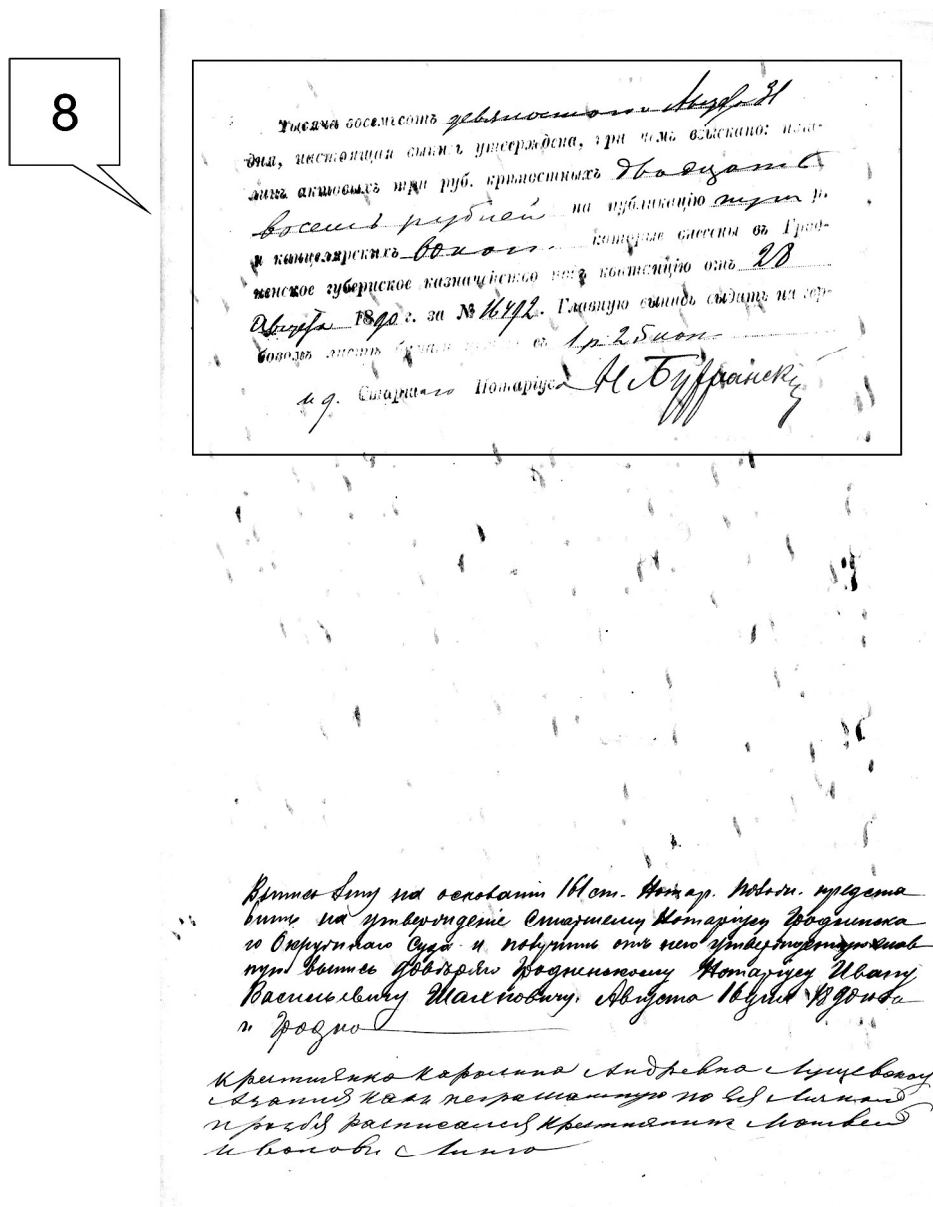 8
Тысяча восемьсотъ девяностого Августа 31
дня, настоящая выпись утверждена, при чемъ взыскано: пош-
линъ актовыхъ три руб. крѣпостныхъ двадцать
восемь рублей на публикацію три р.
и канцелярскихъ 60 коп. которые внесены въ Грод-
ненское губернское казначейство подъ квитанцію отъ 28
Августа 1890 г. за № 16492. Главную выпись выдать на гер-
бовомъ листѣ въ 1 р 25 коп
и д. Старшаго Нотаріуса Н
Выпись сію на основаніи 161 ст. Нотар. Полож. предста
вить на утвержденіе Старшему Нотаріусу Гроднинска
го Окружнаго Суда и получить отъ него утвержденную глав
ную выпись довѣряю Гродненскому Нотаріусу Ивану
Васильевичу Шахновичу. Августа 16 дня 1890 года
г. Гродно
Крестьянка Каролина Андреевна
а за нея какъ неграмотную по ея личной
прозбѣ расписался крестьянинъ Матвей